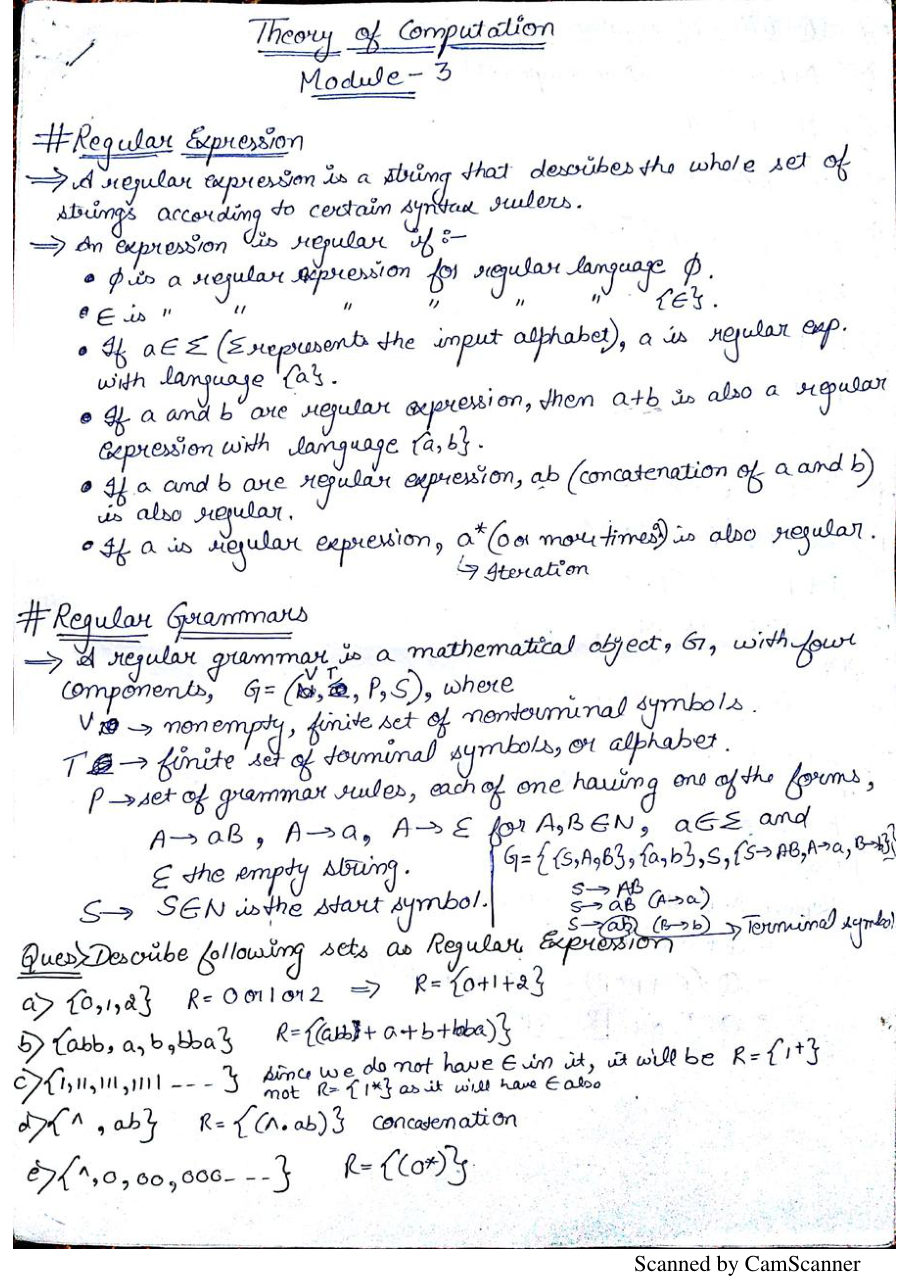 Theory of Computation
Module - 3
# Regular Expression
⇒ A regular expression is a string that describes the whole set of
strings according to certain syntax rulers.
⇒ An expression is regular if :-
• ϕ is a regular expression for regular language ϕ.
• ∈ is " " " " " " {∈}.
• If a ∈ Σ (Σ represents the input alphabet), a is regular exp.
with language {a}.
• If a and b are regular expression, then a+b is also a regular
expression with language {a,b}.
• If a and b are regular expression, ab (concatenation of a and b)
is also regular.
• If a is regular expression, a* (0 or more times) is also regular.
↳ Iteration
# Regular Grammars
⇒ A regular grammar is a mathematical object, G, with four
components, G = (V, T, P, S), where
V → nonempty, finite set of nonterminal symbols.
T → finite set of terminal symbols, or alphabet.
P → set of grammar rules, each of one having one of the forms,
A → aB, A → a, A → ε for A, B ∈ N, a ∈ Σ and
ε the empty string.
S → S∈N is the start symbol.
G = { {S,A,B}, {a,b}, S, {S→AB, A→a, B→b}}
S → AB
S → aB (A→a)
S → ab (B→b) → Terminal symbol
Ques> Describe following sets as Regular Expression
a> {0,1,2} R = 0 or 1 or 2 ⇒ R = {0+1+2}
b> {abb, a, b, bba} R = {(abb + a + b + bba)}
c> {1,11,111,1111 ----} since we do not have ∈ in it, it will be R = {1+}
not R = {1*} as it will have ∈ also
d> {^, ab} R = {(^.ab)} concatenation
e> {^, 0, 00, 000- - -} R = {(0*)}
Scanned by CamScanner